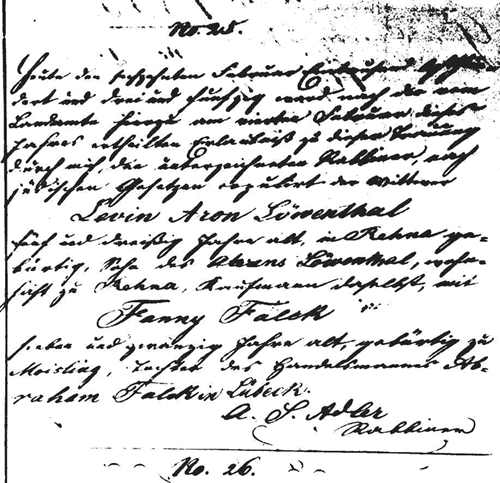 No. 25.
Heute den sechszehnten Februar Eintausend achthun-
dert und drei und funfzig ward nach der vom
Landamte hierzu am vierten Februar dieses
Jahres ertheilten Erlaubniß zu dieser Trauung
durch mich, den unterzeichneten Rabbiner, nach
jüdischen Gesetzen copulirt der Wittwer
Levin Aron Löwenthal
fünf und dreißig Jahre alt, in Rehna ge-
bürtig, Sohn des Löwenthal, wohn-
haft zu Rehna, Kaufmann daselbst, mit
Fanny Falck
sieben und zwanzig Jahre alt, gebürtig zu
Moisling, Tochter des Handelsmannes Ab-
raham Falck in Lübeck.
A. S. Adler
Rabbiner
No. 26.